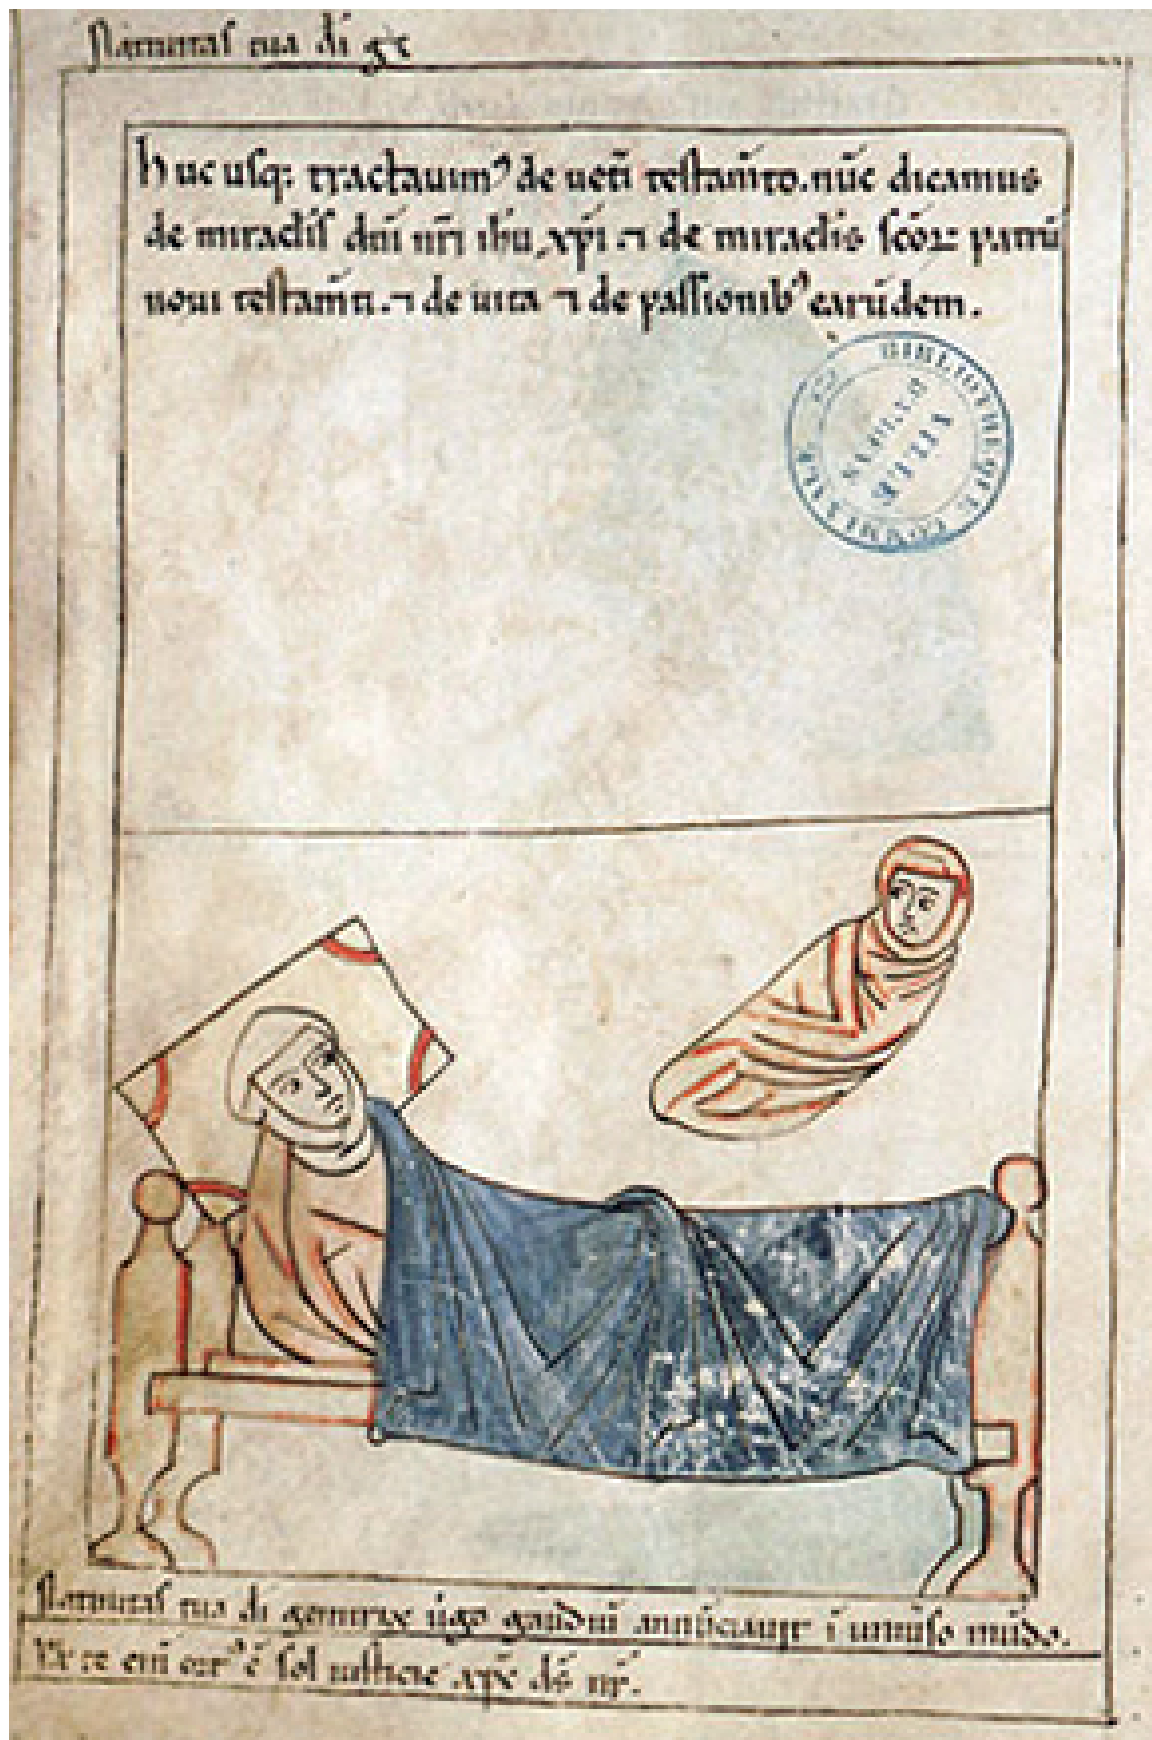 Natiuitas tua di gc
Huc usq; tractauim⁹ de uet̄i testam̄to. nūc dicamus
de miraclis dn̄i nr̄i ihū xp̄i ⁊ de miraclis sc̄oꝝ patrū
noui testam̄ti. ⁊ de uita ⁊ de passionib⁹ earūdem.
BIBLIOTHEQUE COMMUNALE
VILLE
Natiuitas tua di genitrix ūgo gaudiū annūciauit ī uniūso mūdo.
Ex te eni ort⁹ ē sol iusticie xp̄c ds̄ nr̄.